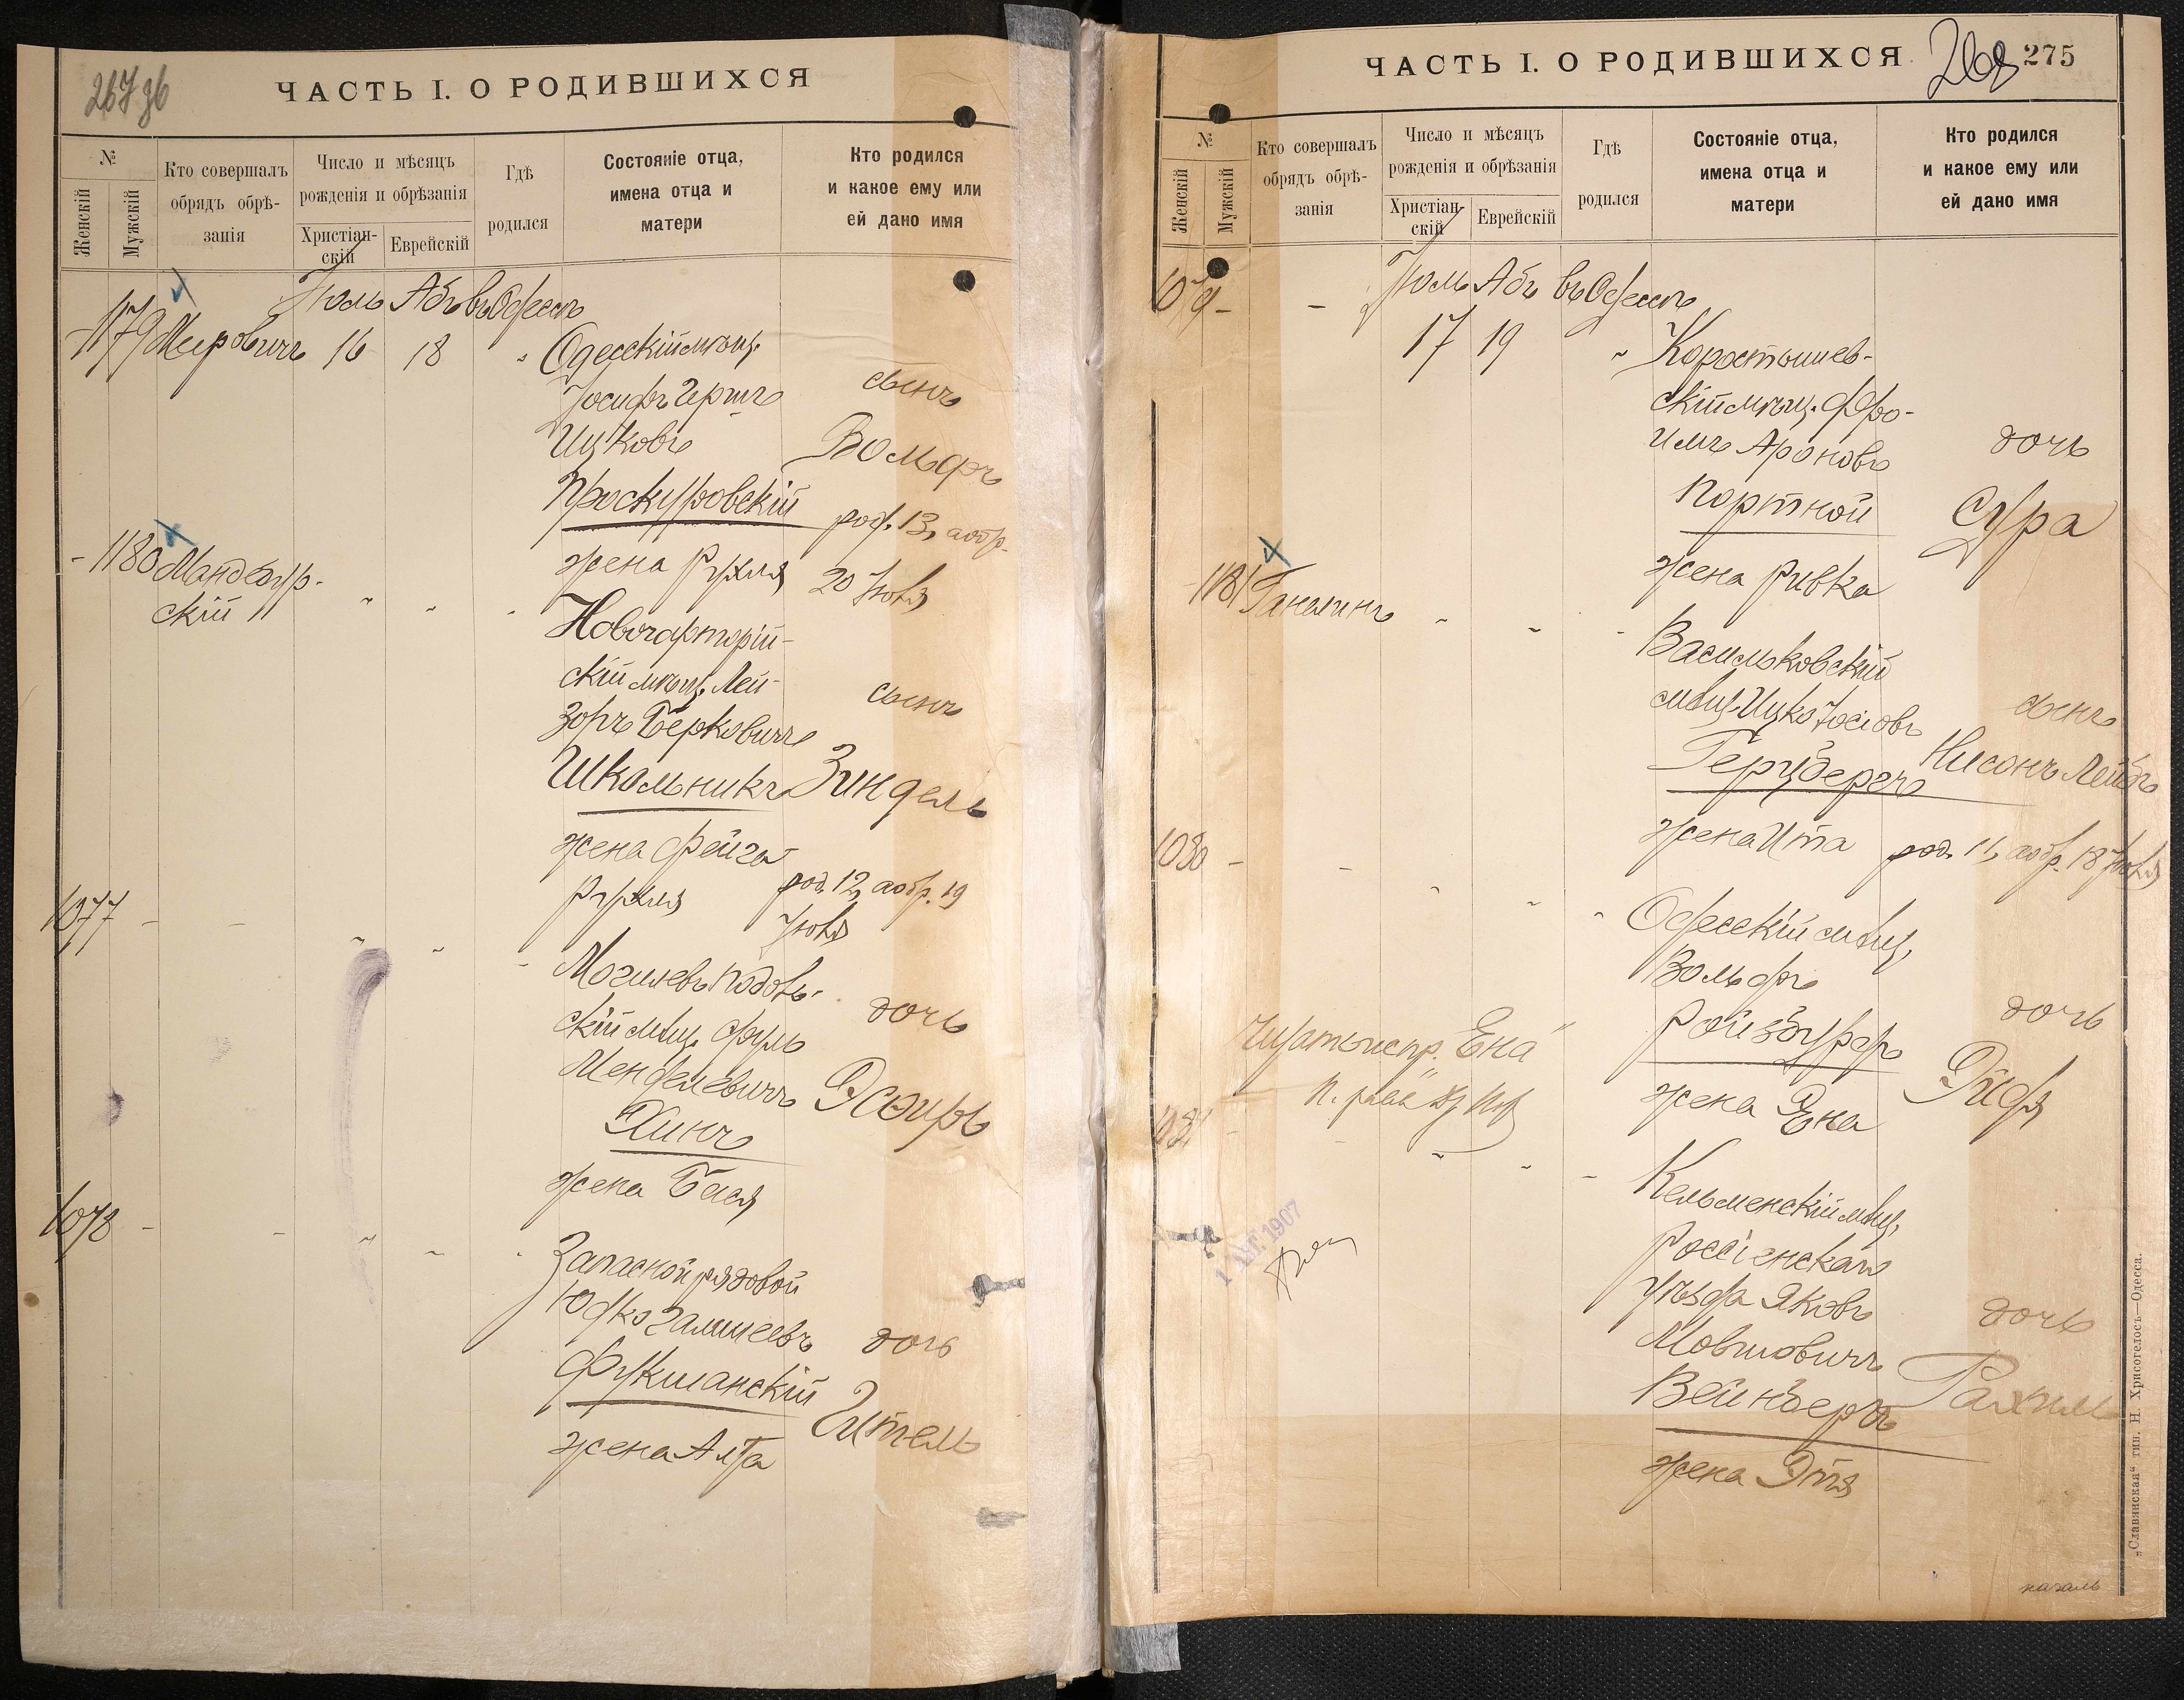 ЧАСТЬ I. О РОДИВШИХСЯ
№
Женскій
Мужскій
Кто совершалъ
обрядъ обрѣ-
занія
Число и мѣсяцъ
рожденія и обрѣзанія
Христіан-
скій
Еврейскій
Гдѣ
родился
Состояніе отца,
имена отца и
матери
Кто родился
и какое ему или
ей дано имя
Іюль Абъ въ Одессѣ
- 1179 Мировичъ 16 18 " Одесскій мѣщ.
Іосифъ Гершъ
Ицковъ
Проскуровскій
жена Рухля
сынъ
Вольфъ
род. 13, а обр.
20 Іюля
- 1180 Мандебур-
скій " " "
Новочарторій-
скій мѣщ. Лей-
зоръ Берковичъ
Школьникъ
жена Фейга
Рухля
сынъ
Зиндель
род. 12, а обр. 19
Іюля
1077 - - " " "
Могилевъ Подоль-
скій мѣщ. Сруль
Менделевичъ
Хинъ
жена Бася
дочь
Эсѳирь
1078 - - " " "
Запасной рядовой
Юдко
Фукшанскій
жена Алта
дочь
Гитель
ЧАСТЬ I. О РОДИВШИХСЯ
268
275
№
Женскій
Мужскій
Кто совершалъ
обрядъ обрѣ-
занія
Число и мѣсяцъ
рожденія и обрѣзанія
Христіан-
скій
Еврейскій
Гдѣ
родился
Состояніе отца,
имена отца и
матери
Кто родился
и какое ему или
ей дано имя
Іюль Абъ въ Одессѣ
1079 - - 17 19 " Коростышев-
скій мѣщ. Фро-
имъ Ароновъ
Портной
жена Ривка
дочь
Сура
1181 " " "
Васильковскій
мѣщ. Ицко Іосіовъ
Герцбергъ
жена Ита
сынъ
Нисонъ Лейбъ
род. 11, а обр. 18 Іюля
1080 - - " " "
Одесскій мѣщ.
Вольфъ
Ройзбурдъ
жена Ена
дочь
Эйдя
испр. "Ена"
1081 - - " " "
Кельменскій мѣщ.
Россіенскаго
уѣзда Яковъ
Мовшовичъ
Вейнбергъ
жена Этя
дочь
Рахиль
1 АВГ. 1907
„Славянская“ тип. Н. Хрисогелосъ—Одесса.